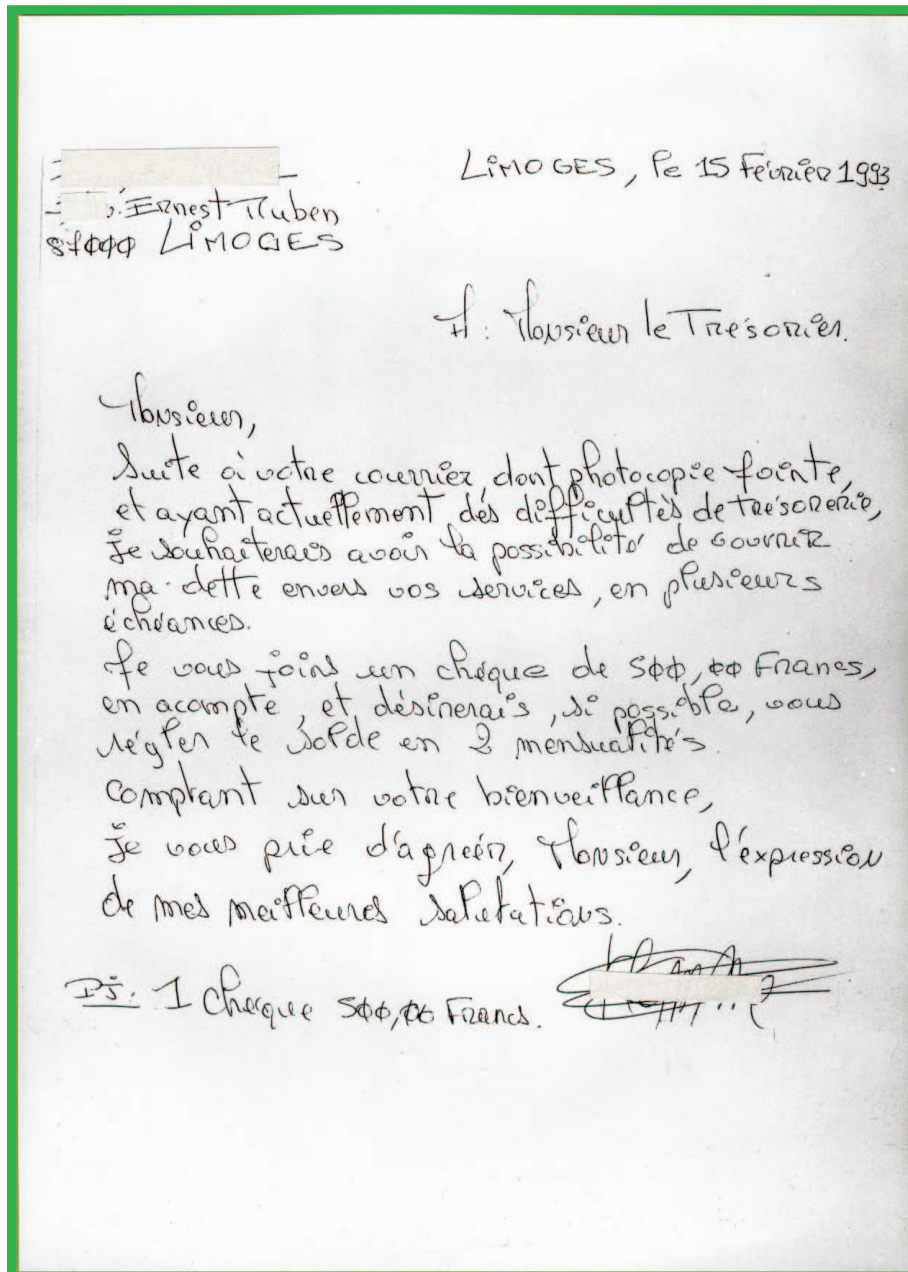 LIMOGES, le 15 Février 1993
Ernest Ruben
87000 LIMOGES
A: Monsieur le Trésorier.
Monsieur,
Suite à votre courrier dont photocopie jointe,
et ayant actuellement des difficultés de trésorerie,
je souhaiterais avoir la possibilité de couvrir
ma dette envers vos services, en plusieurs
échéances.
Je vous joins un chèque de 500,00 Francs,
en acompte, et désirerais, si possible, vous
régler le solde en 2 mensualités.
Comptant sur votre bienveillance,
je vous prie d'agréér, Monsieur, l'expression
de mes meilleures salutations.
PJ: 1 Chèque 500,00 Francs.